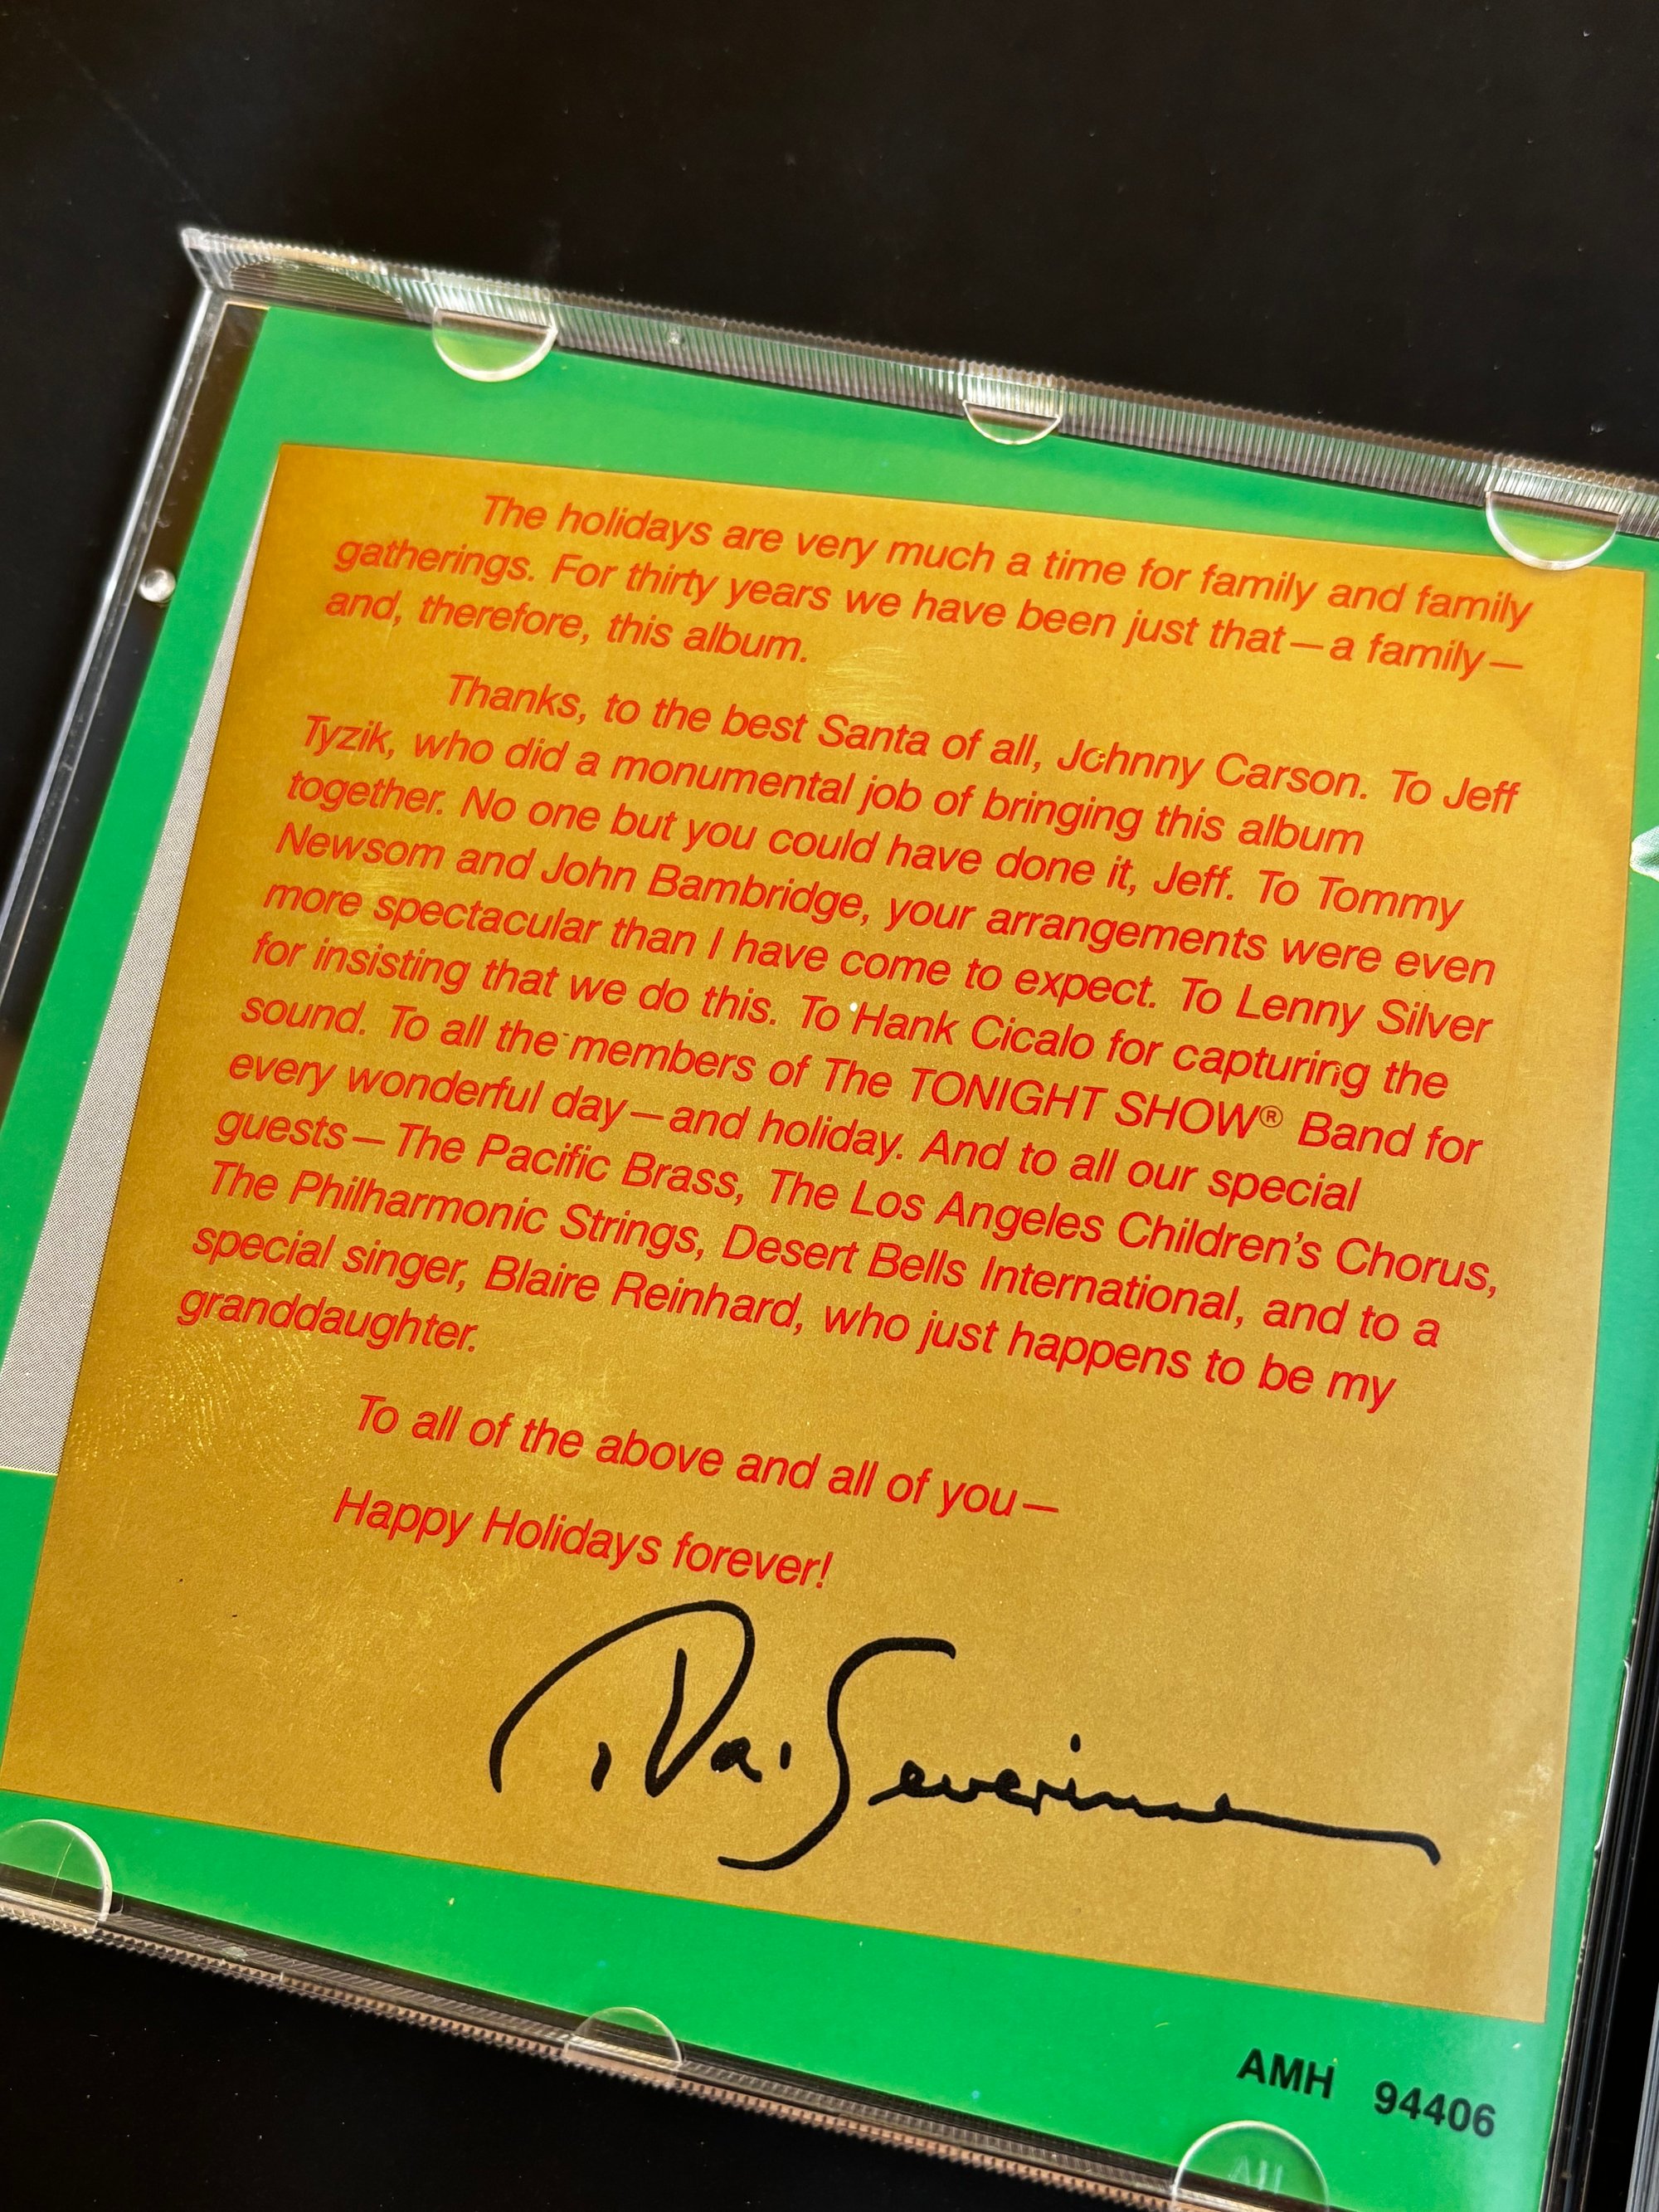 The holidays are very much a time for family and family
gatherings. For thirty years we have been just that—a family—
and, therefore, this album.
Thanks, to the best Santa of all, Johnny Carson. To Jeff
Tyzik, who did a monumental job of bringing this album
together. No one but you could have done it, Jeff. To Tommy
Newsom and John Bambridge, your arrangements were even
more spectacular than I have come to expect. To Lenny Silver
for insisting that we do this. To Hank Cicalo for capturing the
sound. To all the members of The TONIGHT SHOW® Band for
every wonderful day—and holiday. And to all our special
guests—The Pacific Brass, The Los Angeles Children's Chorus,
The Philharmonic Strings, Desert Bells International, and to a
special singer, Blaire Reinhard, who just happens to be my
granddaughter.
To all of the above and all of you—
Happy Holidays forever!
Severinsen
AMH 94406